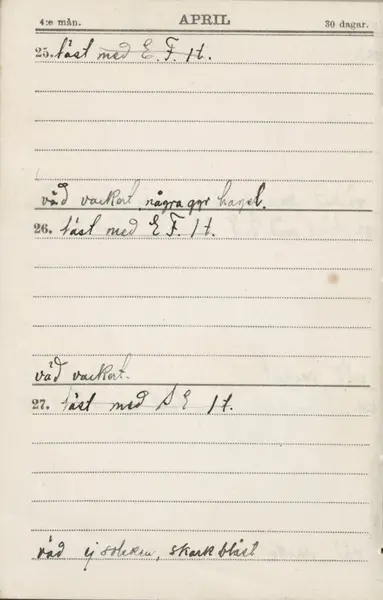 4:e mån. APRIL 30 dagar.
25. läst med E. F. 1 t.
väd vackert, några ggr hagel.
26. läst med E F. 1 t.
väd vackert.
27. läst med S E 1 t.
väd ej solsken, stark blåst